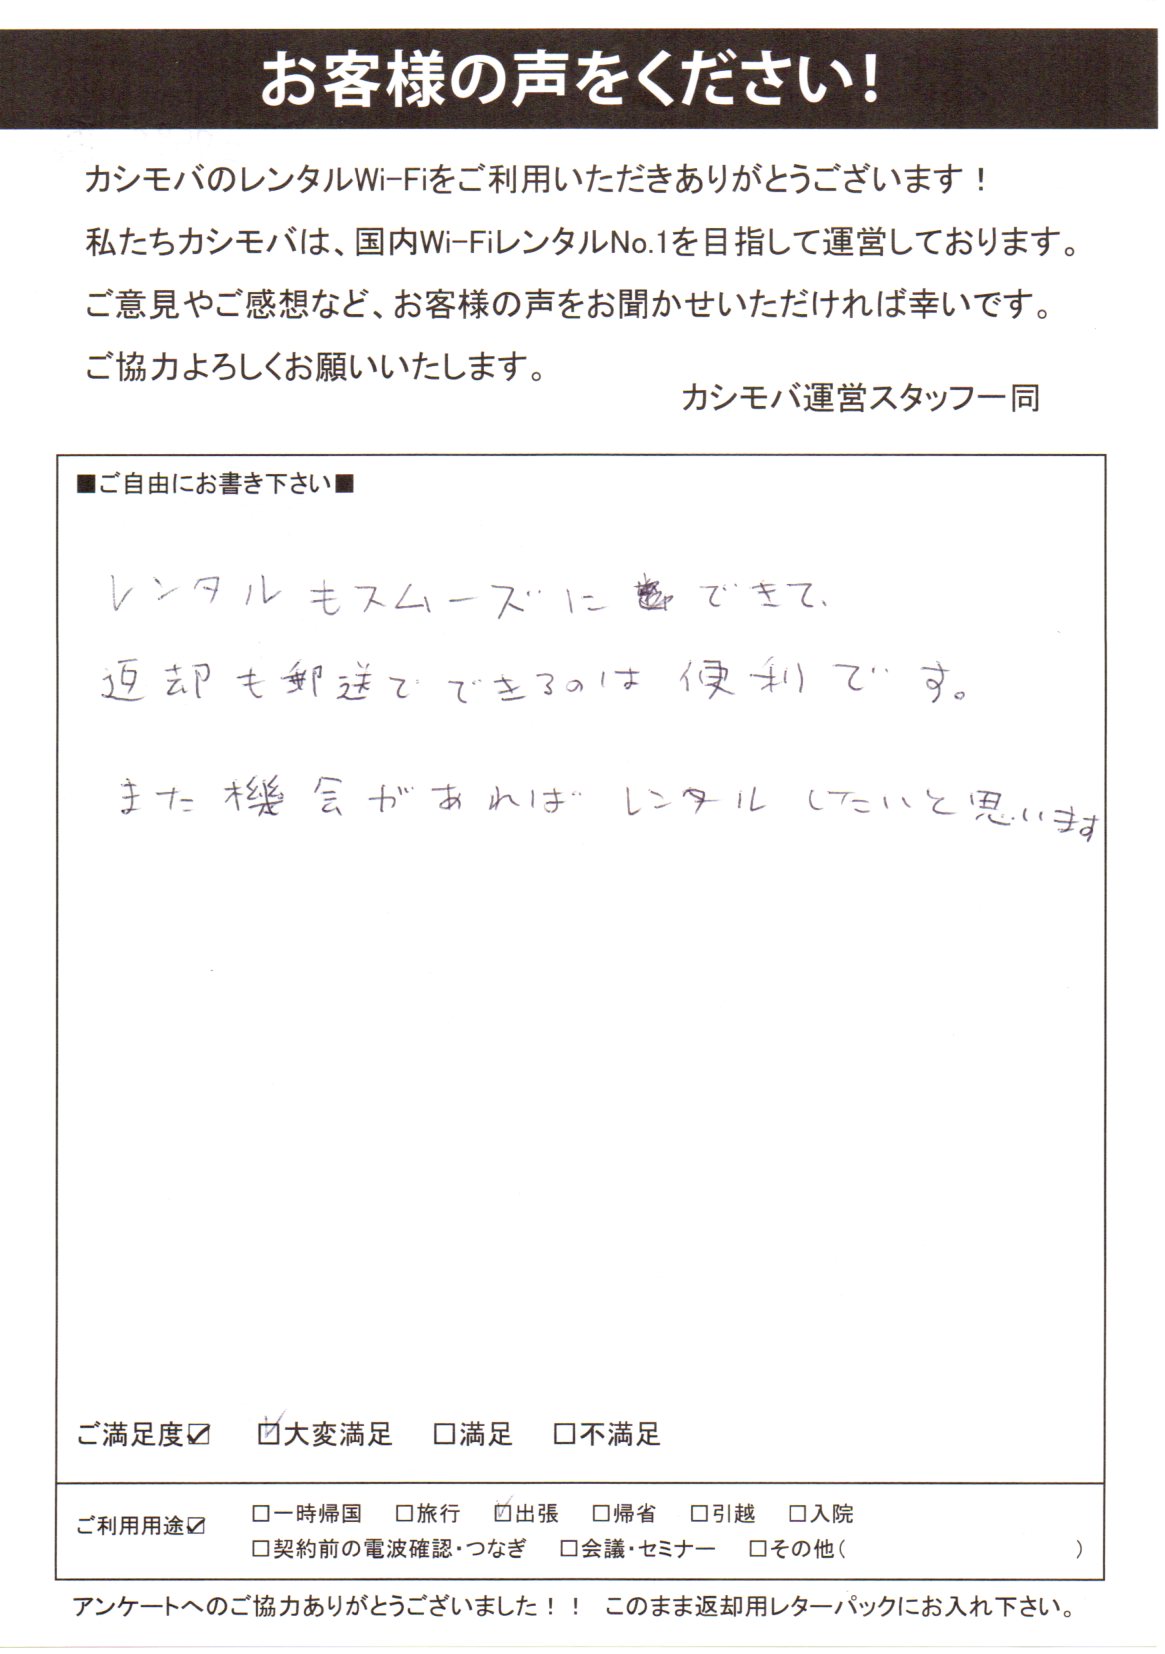 お客様の声をください！
カシモバのレンタルWi-Fiをご利用いただきありがとうございます！
私たちカシモバは、国内Wi-FiレンタルNo.1を目指して運営しております。
ご意見やご感想など、お客様の声をお聞かせいただければ幸いです。
ご協力よろしくお願いいたします。
カシモバ運営スタッフ一同
■ご自由にお書き下さい■
レンタルもスムーズにできて、
返却も郵送でできるのは便利です。
また機会があればレンタルしたいと思います
ご満足度☑ ☑大変満足 □満足 □不満足
ご利用用途☑ □一時帰国 □旅行 ☑出張 □帰省 □引越 □入院
□契約前の電波確認・つなぎ □会議・セミナー □その他（ ）
アンケートへのご協力ありがとうございました！！ このまま返却用レターパックにお入れ下さい。